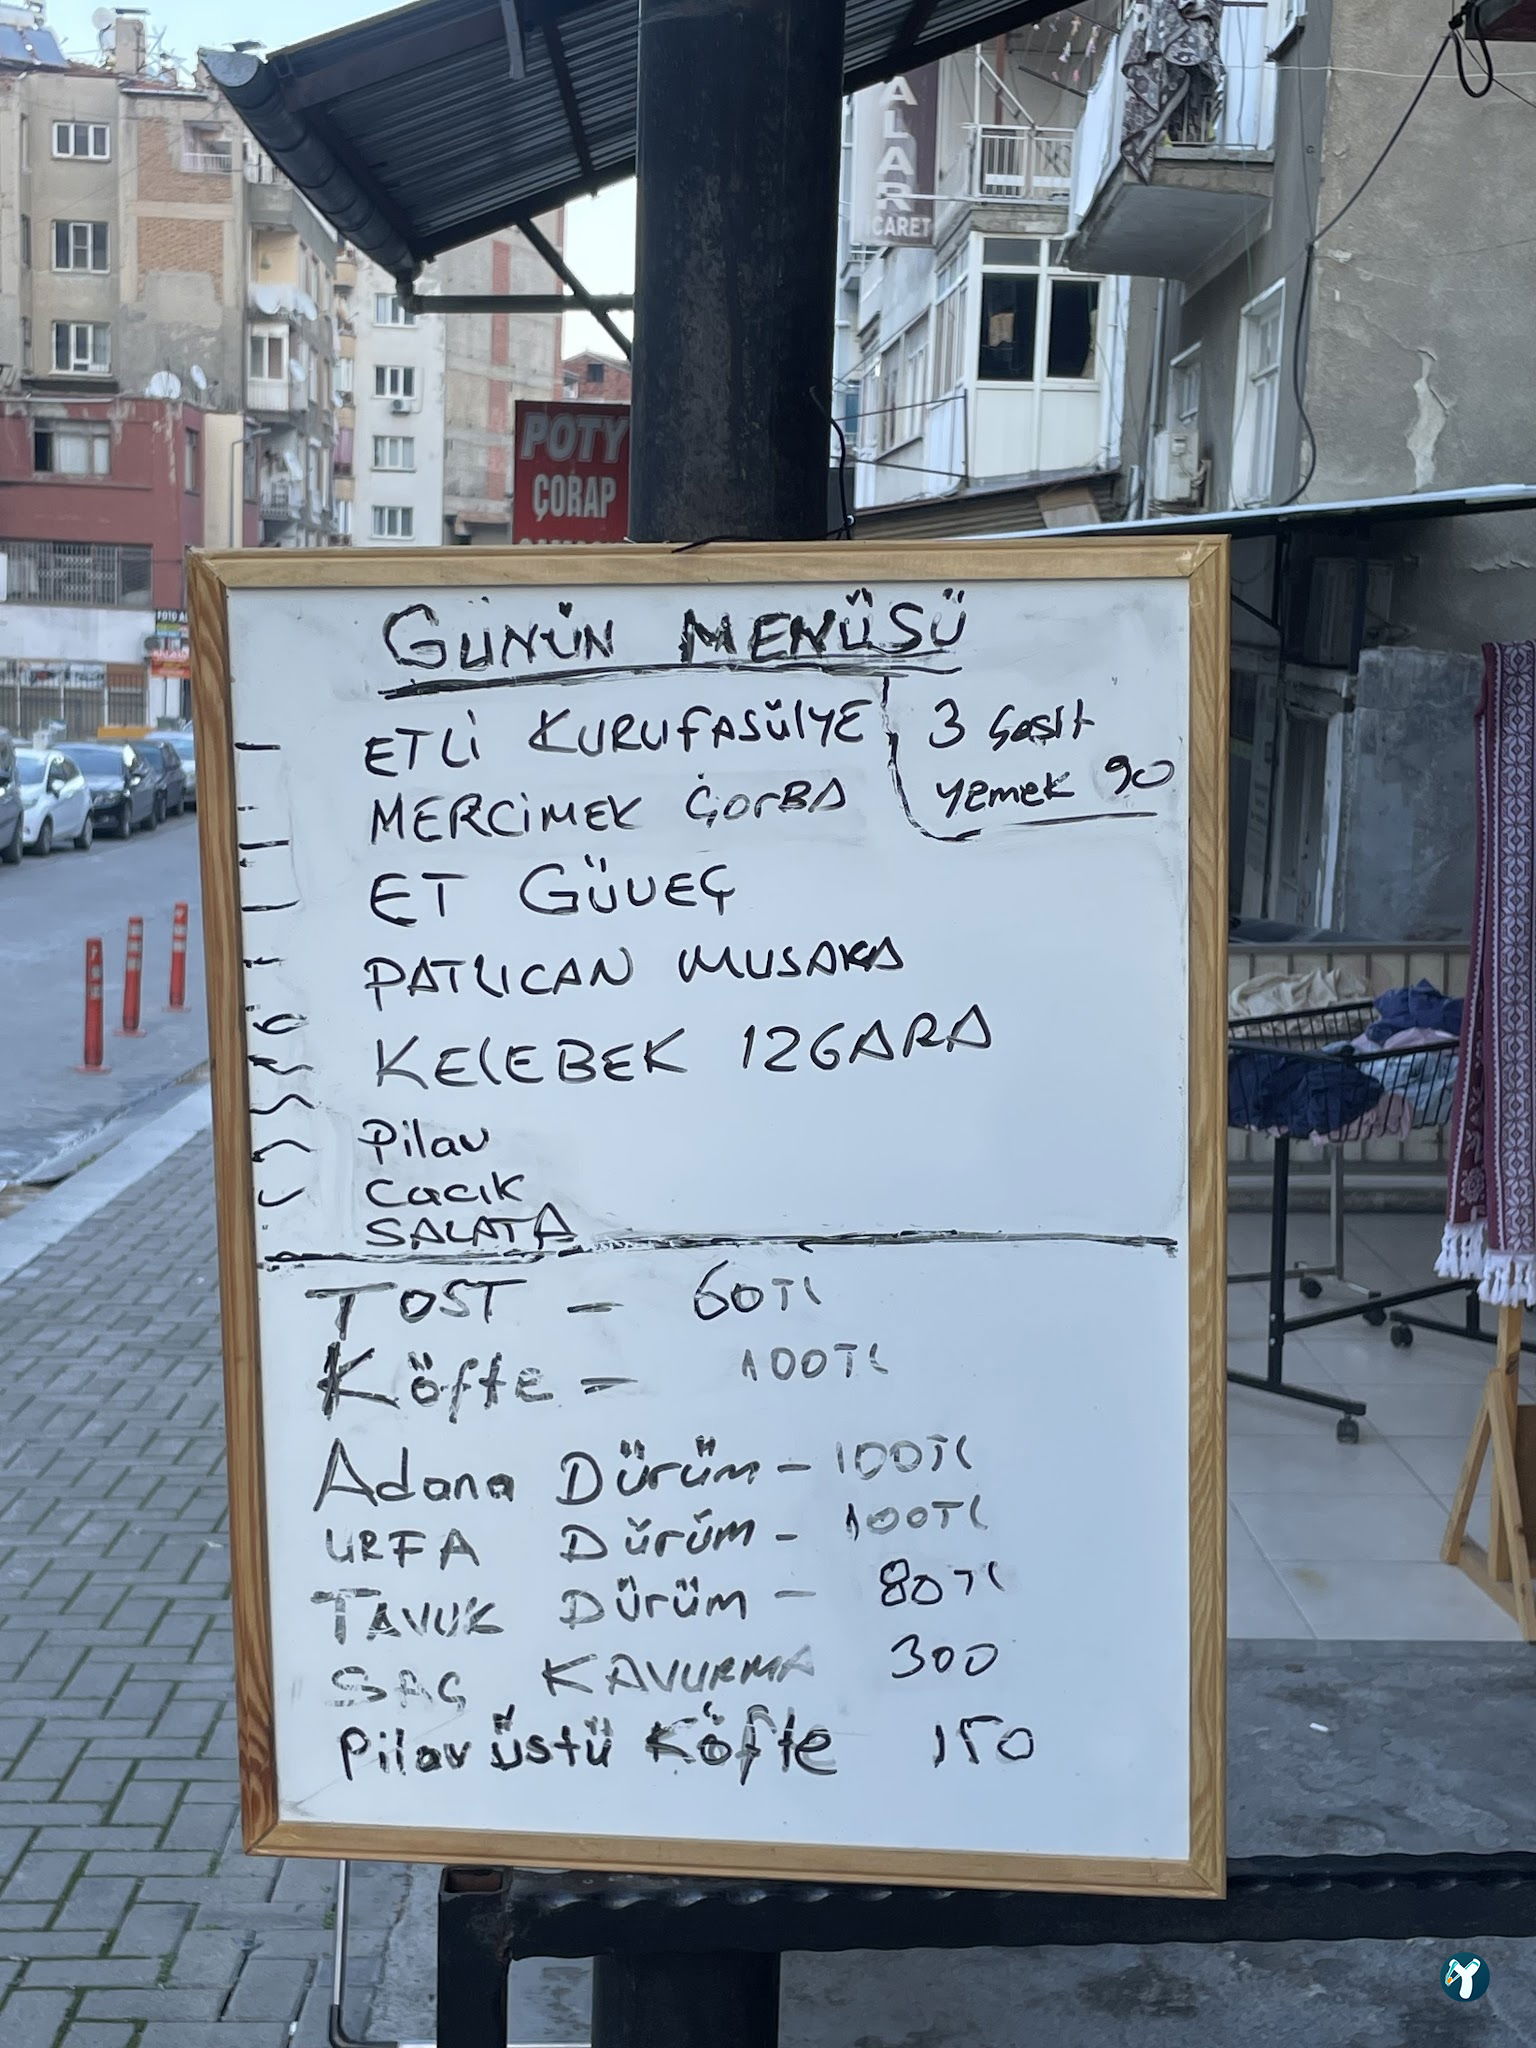 ALAR
CARET
POTY
ÇORAP
FOTO AL
GÜNÜN MENÜSÜ
ETLİ KURUFASÜLYE
3 Çeşit
yemek 90
MERCİMEK ÇORBA
ET GÜVEÇ
PATLICAN MUSAKA
KELEBEK IZGARA
Pilav
Cacık
SALATA
TOST - 60TL
Köfte - 100TL
Adana Dürüm - 100TL
URFA Dürüm - 100TL
TAVUK Dürüm - 80TL
SAÇ KAVURMA 300
Pilav üstü Köfte 150